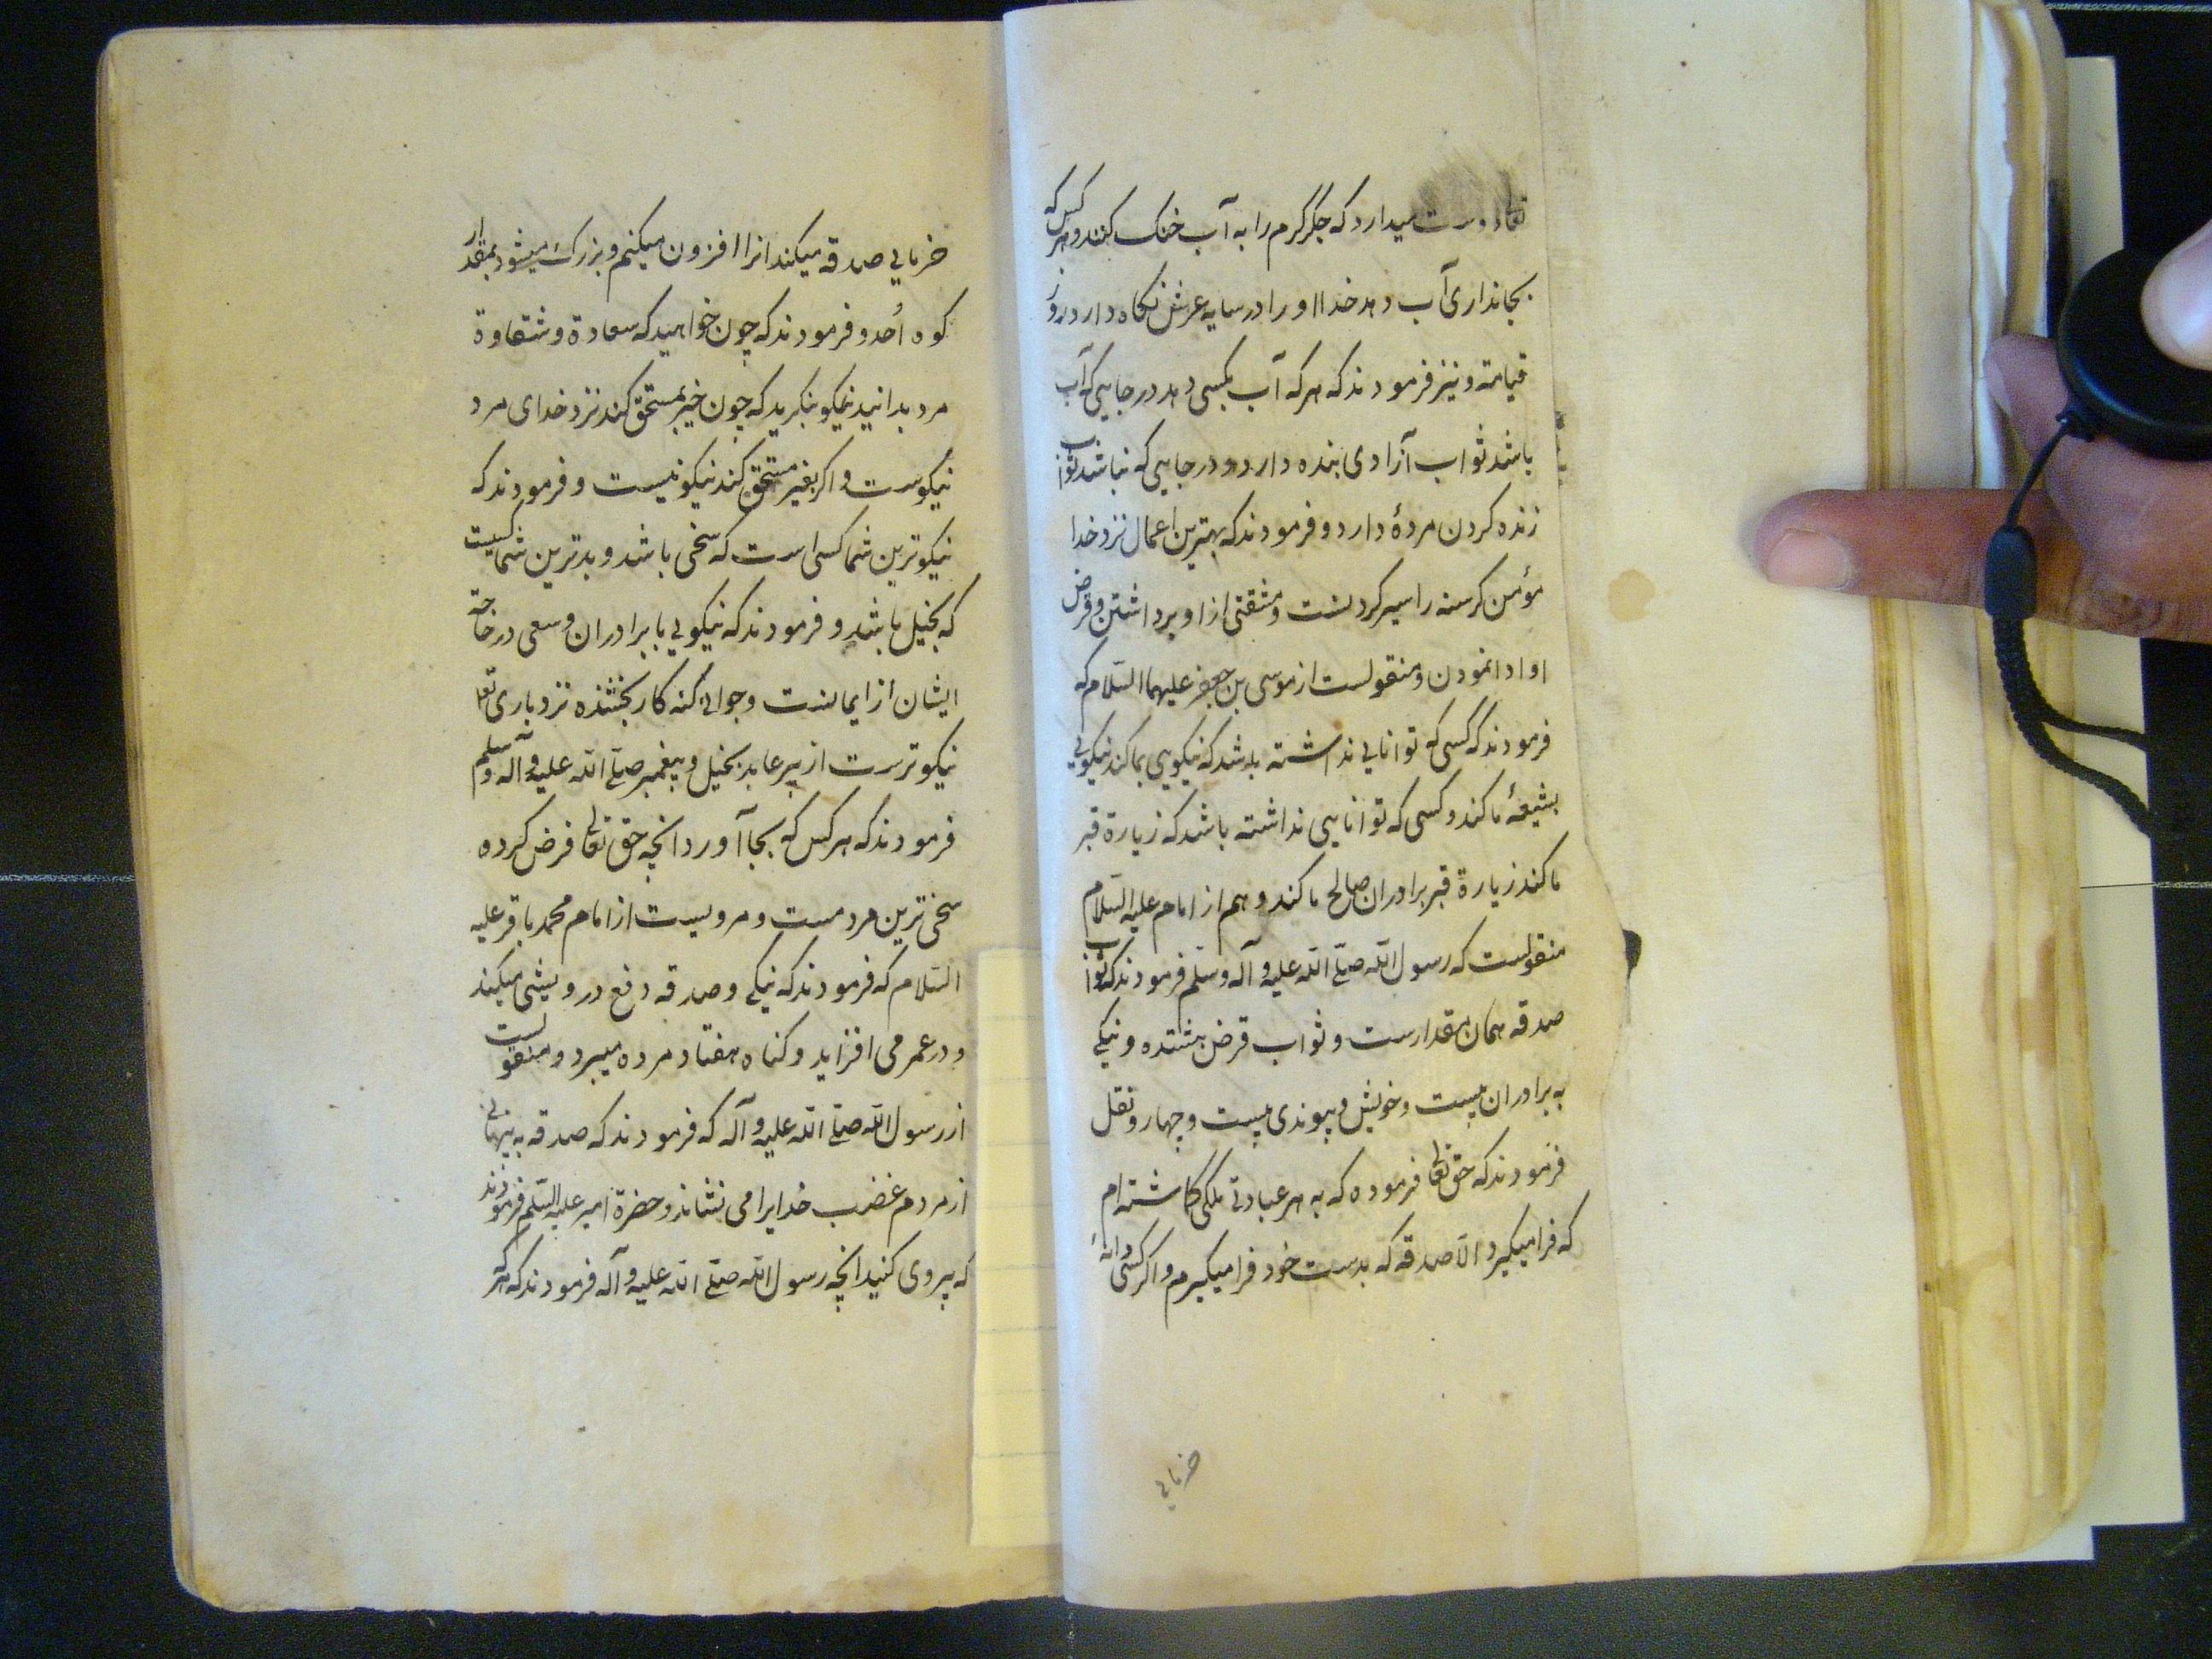 تعالی دوست میدارد که جگر گرم را به آب خنک کنند و هر کس که
بجانداری آب دهد خدا او را در سایه عرش نکاه دارد روز
قیامة و نیز فرمودند که هر که آب بکسی دهد در جایی که آب
باشد ثواب آزادی بنده دارد و در جایی که نباشد ثواب
زنده کردن مردهٔ دارد و فرمودند که بهترین اعمال نزد خدا
مؤمن کرسنه را سیر کردنست و مشقتی از او برداشتن و قرض
او ادا نمودن و منقولست از موسی بن جعفر علیهما السّلام که
فرمودند که کسی که توانایی نداشته باشد که نیکویی بما کند نیکویی
بشیعهٔ ما کند و کسی که توانایی نداشته باشد که زیارة قبر
ما کند زیارة قبر برادران صالح ما کند و هم از امام علیه السّلام
منقولست که رسول اللّه صلّی اللّه علیه و آله و سلّم فرمودند که ثواب
صدقه همان مقدارست و ثواب قرض هشتده و نیکی
به برادران بیست و خویش و پیوندی بیست و چهار و نقل
فرمودند که حق تعالی فرموده که به هر عبادتی ملکی کماشته ام
که فرا میکیرد الّا صدقه که بدست خود فرا میکیرم و اکر کسی دانهٔ
خرمایی
خرمایی صدقه میکند انرا افزون میکنم و بزرک میشود بمقدار
کوه اُحد و فرمودند که چون خواهید که سعادة و شقاوة
مرد بدانید نیکو بنکرید که چون خیر بمستحق کند نزد خدای مرد
نیکوست و اکر بغیر مستحق کند نیکو نیست و فرمودند که
نیکوترین شما کسی است که سخی باشد و بدترین شما کسیست
که بخیل باشد و فرمودند که نیکویی با برادران و سعی در حاجة
ایشان از ایمانست و جوانی کنه کار بخشنده نزد باری تعالی
نیکوترست از پیر عابد بخیل و پیغمبر صلّی اللّه علیه و آله و سلّم
فرمودند که هر کس که بجا آورد انچه حق تعالی فرض کرده
سخی ترین مردمست و مرویست از امام محمد باقر علیه
السّلام که فرمودند که نیکی و صدقه دفع درویشی میکند
و در عمر می افزاید و کناه هفتاد مرده میبرد و منقولست
از رسول اللّه صلّی اللّه علیه و آله که فرمودند که صدقه به پنهانی
از مردم غضب خدایرا می نشاند و حضرة امیر علیه السّلم فرمودند
که پیروی کنید انچه رسول اللّه صلّی اللّه علیه و آله فرمودند که هر که